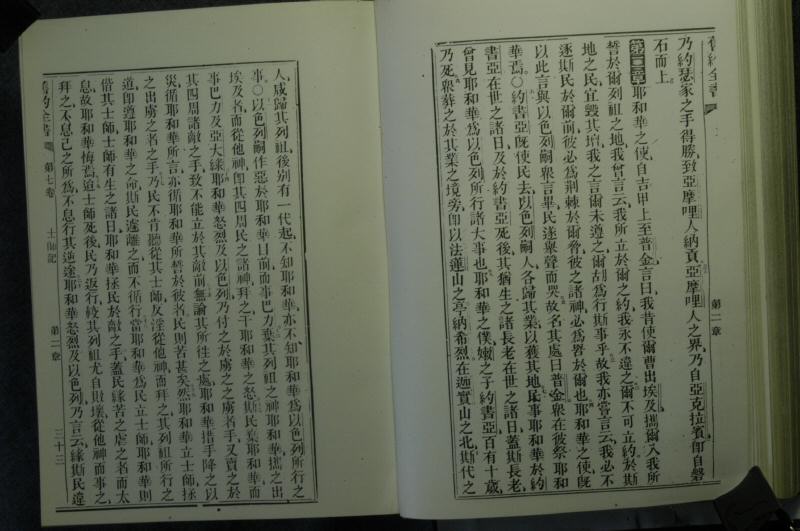 舊約全書
第二章
乃約瑟家之手得勝、致亞摩哩人納貢、亞摩哩人之界、乃自亞克拉濱即自磐
石而上、
第二章 耶和華之使、自吉甲上至普金言曰、我昔使爾曹出埃及攜爾入我所
誓於爾列祖之地、我曾言云、我所立於爾之約、我永不違之、爾不可立約於斯
地之民、宜毀其壇、我之言爾未遵之、爾胡為行斯事乎、故我亦嘗言云、我必不
逐斯民於爾前、彼必為荊棘於爾脅、彼之諸神必為罟於爾也、耶和華之使既
以此言與以色列嗣眾言畢、民遂舉聲而哭、故名其處曰普金、眾在彼祭耶和
華焉。○約書亞既使民去、以色列嗣人各歸其業、以獲其地、民事耶和華於約
書亞在世之諸日、及於約書亞死後、其猶生之諸長老在世之諸日、蓋斯長老、
曾見耶和華為以色列所行諸大事也、耶和華之僕嫩之子約書亞、百有十歲、
乃死、眾葬之於其業之境旁、即以法蓮山之亭納希烈、在迦實山之北、斯代之
人、咸歸其列祖、後別有一代起、不知耶和華、亦不知耶和華為以色列所行之
事。○以色列嗣作惡於耶和華目前、而事巴力、棄其列祖之神耶和華攜之出
埃及者、而從他神、即其四周民之諸神、拜之、干耶和華之怒、斯民棄耶和華、而
事巴力及亞大綠、耶和華怒烈及以色列、乃付之於虜之之虜者手、又賣之於
其四周諸敵之手、致不能立於其敵前、無論其所往之處、耶和華措手降之以
災、循耶和華所言、亦循耶和華所誓於彼者、民則苦甚矣、然耶和華立士師拯
之出虜之者之手、乃民不肯聽從其士師、反淫從他神而拜之、其列祖所行之
道、即遵耶和華之命、斯民遽離之、而不循行、當耶和華為民立士師、耶和華則
偕其士師、士師有生之諸日、耶和華拯民於敵之手、蓋民緣苦之虐之者而太
息、故耶和華悔焉、迨士師死後、民乃返行、較其列祖尤自敗壞、從他神而事之、
拜之、不息己之所為、不息行其逆途、耶和華怒烈及以色列、乃言云、緣斯民違
舊約全書 第七卷 士師記 第二章 三十三